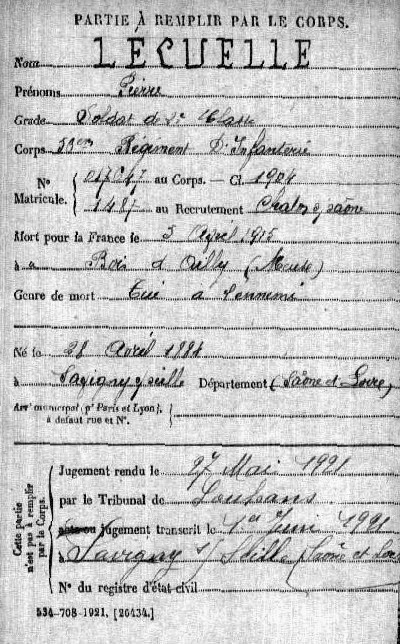 PARTIE À REMPLIR PAR LE CORPS.
Nom LÉCUELLE
Prénoms Pierre
Grade Soldat de 2e Classe
Corps Régiment d'Infanterie
No Matricule. { au Corps. — Cl. 1904
1487 au Recrutement Chalon s/ saône
Mort pour la France le 5 Avril 1915
à Bois d'Ailly (Meuse)
Genre de mort Tué à l'ennemi
Né le 28 Avril 1884
à Savigny s/ seille Département (Saône et Loire)
Arrt municipal (pr Paris et Lyon), à défaut rue et No. {
Cette partie n'est pas à remplir par le Corps.
Jugement rendu le 27 Mai 1921
par le Tribunal de Louhans
acte ou jugement transcrit le 1er Juin 1921
à Savigny s/ Seille (Saône et Loire
No du registre d'état civil
534-708-1921. [26434.]